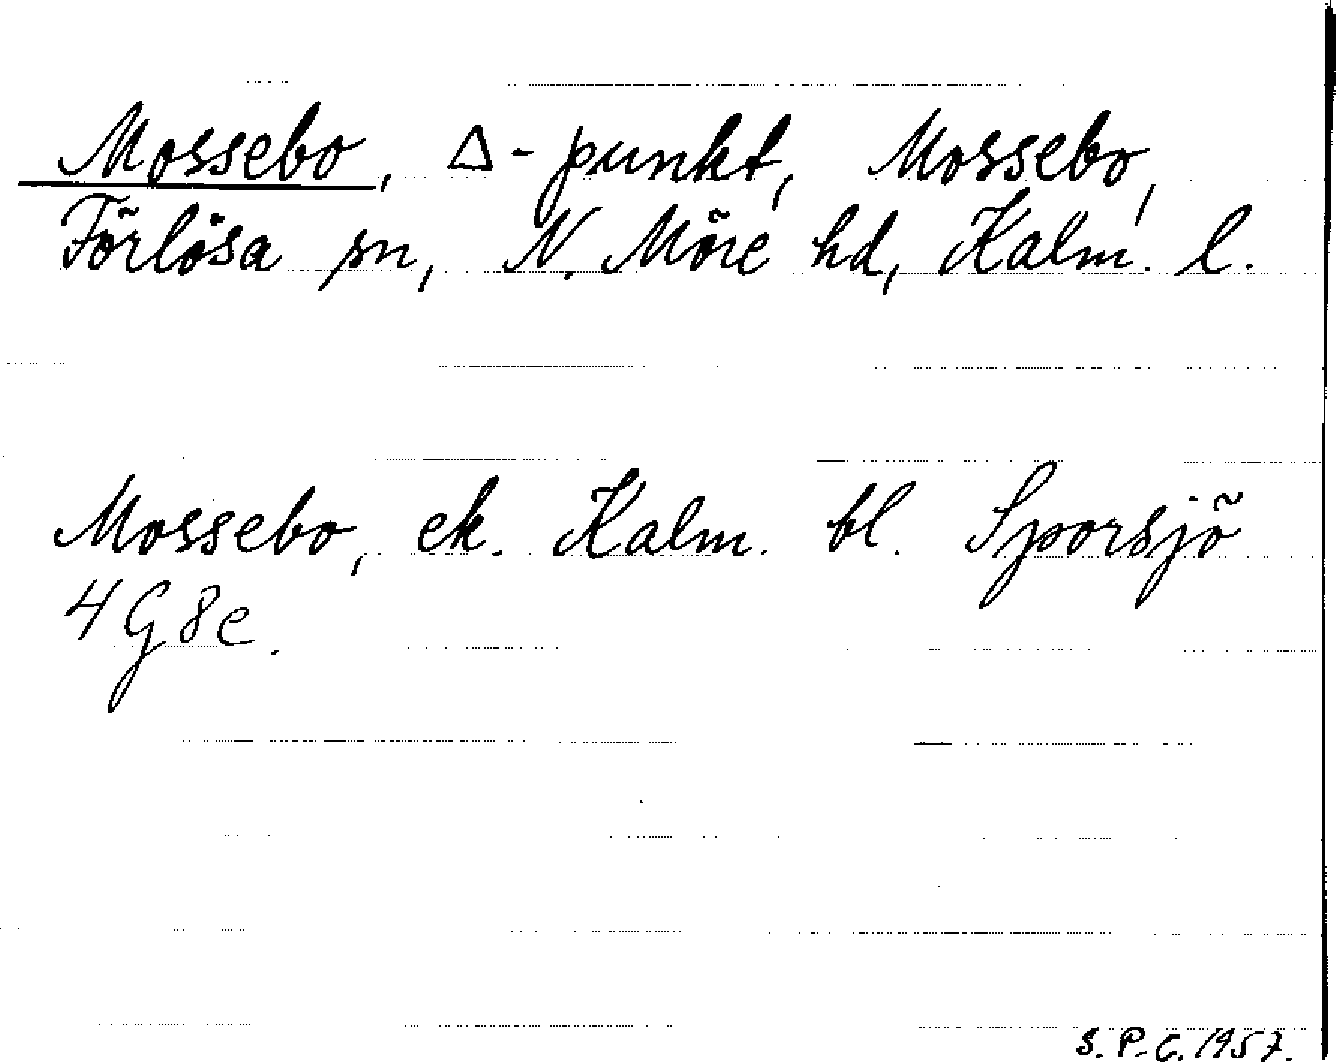 Mossebo, Δ-punkt, Mossebo,
Förlösa sn, N. Möre hd, Kalm. l.
Mossebo, ek. Kalm. bl. Sporsjö
4G8e.
S.P.G. 1957.